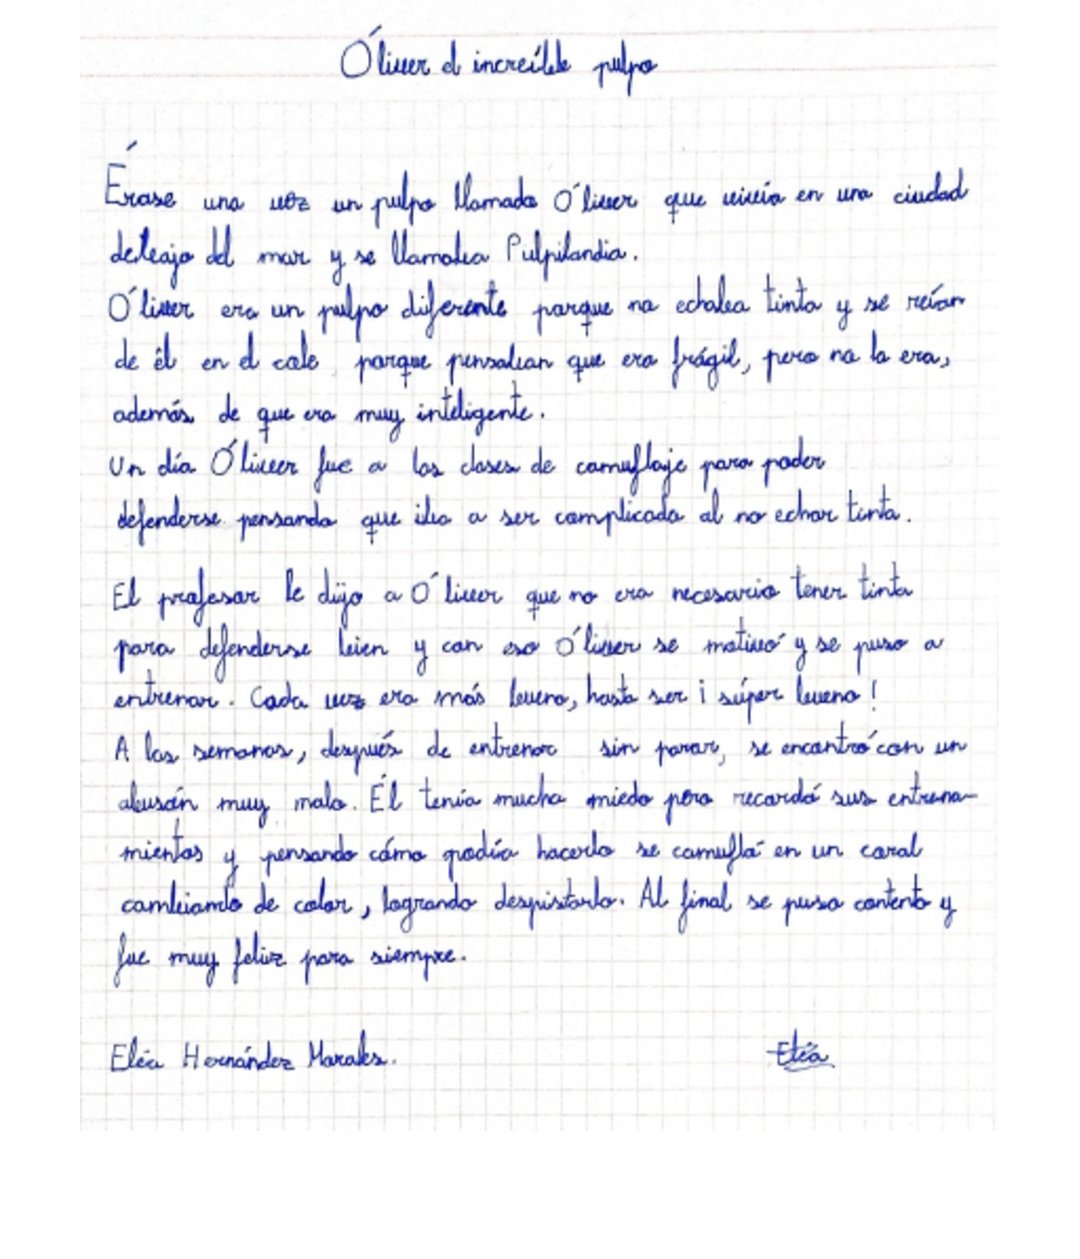 Óliver el increíble pulpo
Érase una vez un pulpo llamado Óliver que vivía en una ciudad
debajo del mar y se llamaba Pulpilandia.
Óliver era un pulpo diferente porque no echaba tinta y se reían
de él en el cole porque pensaban que era frágil, pero no lo era,
además de que era muy inteligente.
Un día Óliver fue a las clases de camuflaje para poder
defenderse pensando que iba a ser complicado al no echar tinta.
El profesor le dijo a Óliver que no era necesario tener tinta
para defenderse bien y con eso Óliver se motivó y se puso a
entrenar. Cada vez era más bueno, hasta ser ¡ súper bueno !
A las semanas, después de entrenar sin parar, se encontró con un
abusón muy malo. Él tenía mucho miedo pero recordó sus entrena-
mientos y pensando cómo podía hacerlo se camufló en un coral
cambiando de color, logrando despistarlo. Al final se puso contento y
fue muy feliz para siempre.
Elia Hernández Morales. Elia